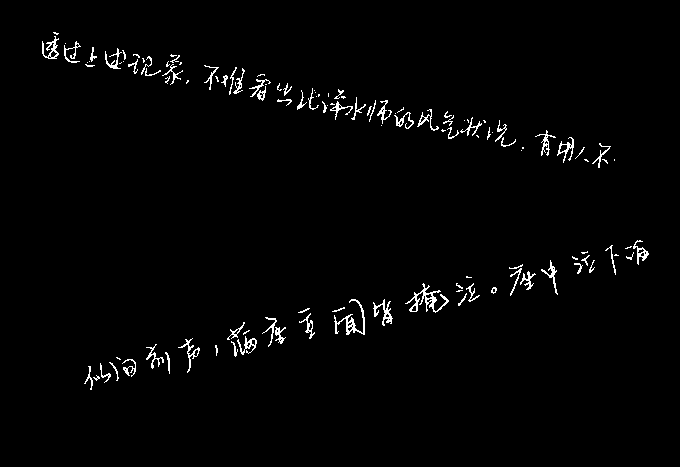 透过上述现象，不难看出北洋水师的风气状况，有用人不
似向前声，满座重闻皆掩泣。座中泣下谁